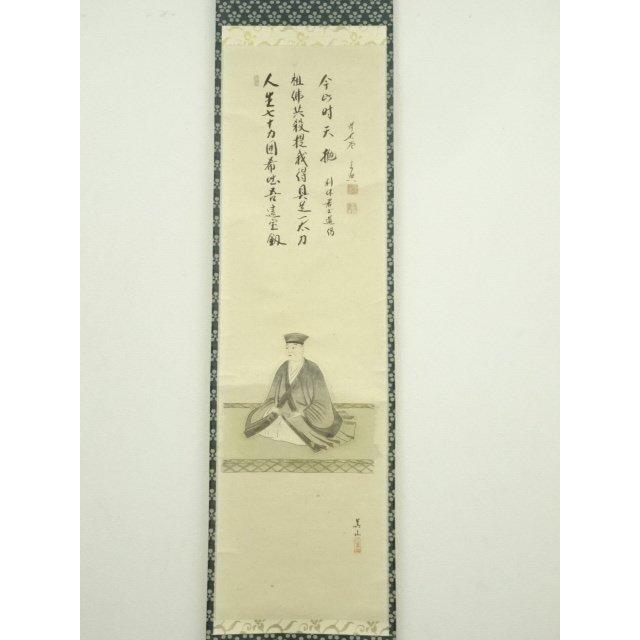 人生七十力囲希咄吾這宝釼
祖佛共殺提我得具足一太刀
今此时天抛
利休居士遺偈